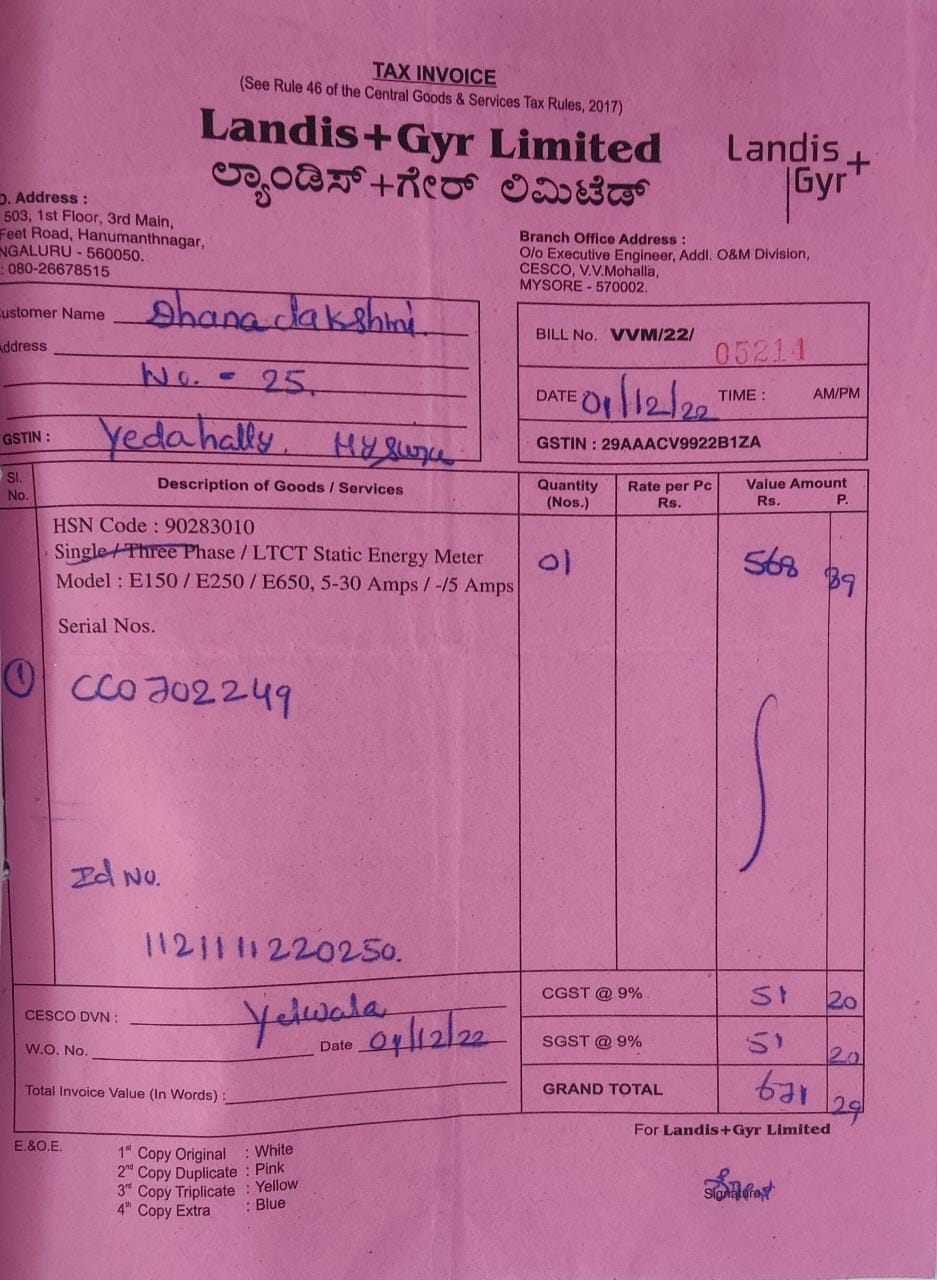 TAX INVOICE
(See Rule 46 of the Central Goods & Services Tax Rules, 2017)
Landis+Gyr Limited
ಲ್ಯಾಂಡಿಸ್+ಗೇರ್ ಲಿಮಿಟೆಡ್
Landis
Gyr+
. Address :
503, 1st Floor, 3rd Main,
Feet Road, Hanumanthnagar,
NGALURU - 560050.
: 080-26678515
Branch Office Address :
O/o Executive Engineer, Addl. O&M Division,
CESCO, V.V.Mohalla,
MYSORE - 570002.
ustomer Name Dhana lakshmi.
ddress
No. - 25.
GSTIN : Yedahally. Mysuru
BILL No. VVM/22/ 05214
DATE 01/12/22 TIME : AM/PM
GSTIN : 29AAACV9922B1ZA
Sl. No. Description of Goods / Services Quantity (Nos.) Rate per Pc Rs. Value Amount Rs. P.
HSN Code : 90283010
Single / Three Phase / LTCT Static Energy Meter 01 568 89
Model : E150 / E250 / E650, 5-30 Amps / -/5 Amps
Serial Nos.
1 CC0702249
Id No.
1121111220250.
CESCO DVN : Yelwala
W.O. No. Date 01/12/22
Total Invoice Value (In Words) :
CGST @ 9% 51 20
SGST @ 9% 51 20
GRAND TOTAL 671 29
For Landis+Gyr Limited
E.&O.E.
1st Copy Original : White
2nd Copy Duplicate : Pink
3rd Copy Triplicate : Yellow
4th Copy Extra : Blue
Signature